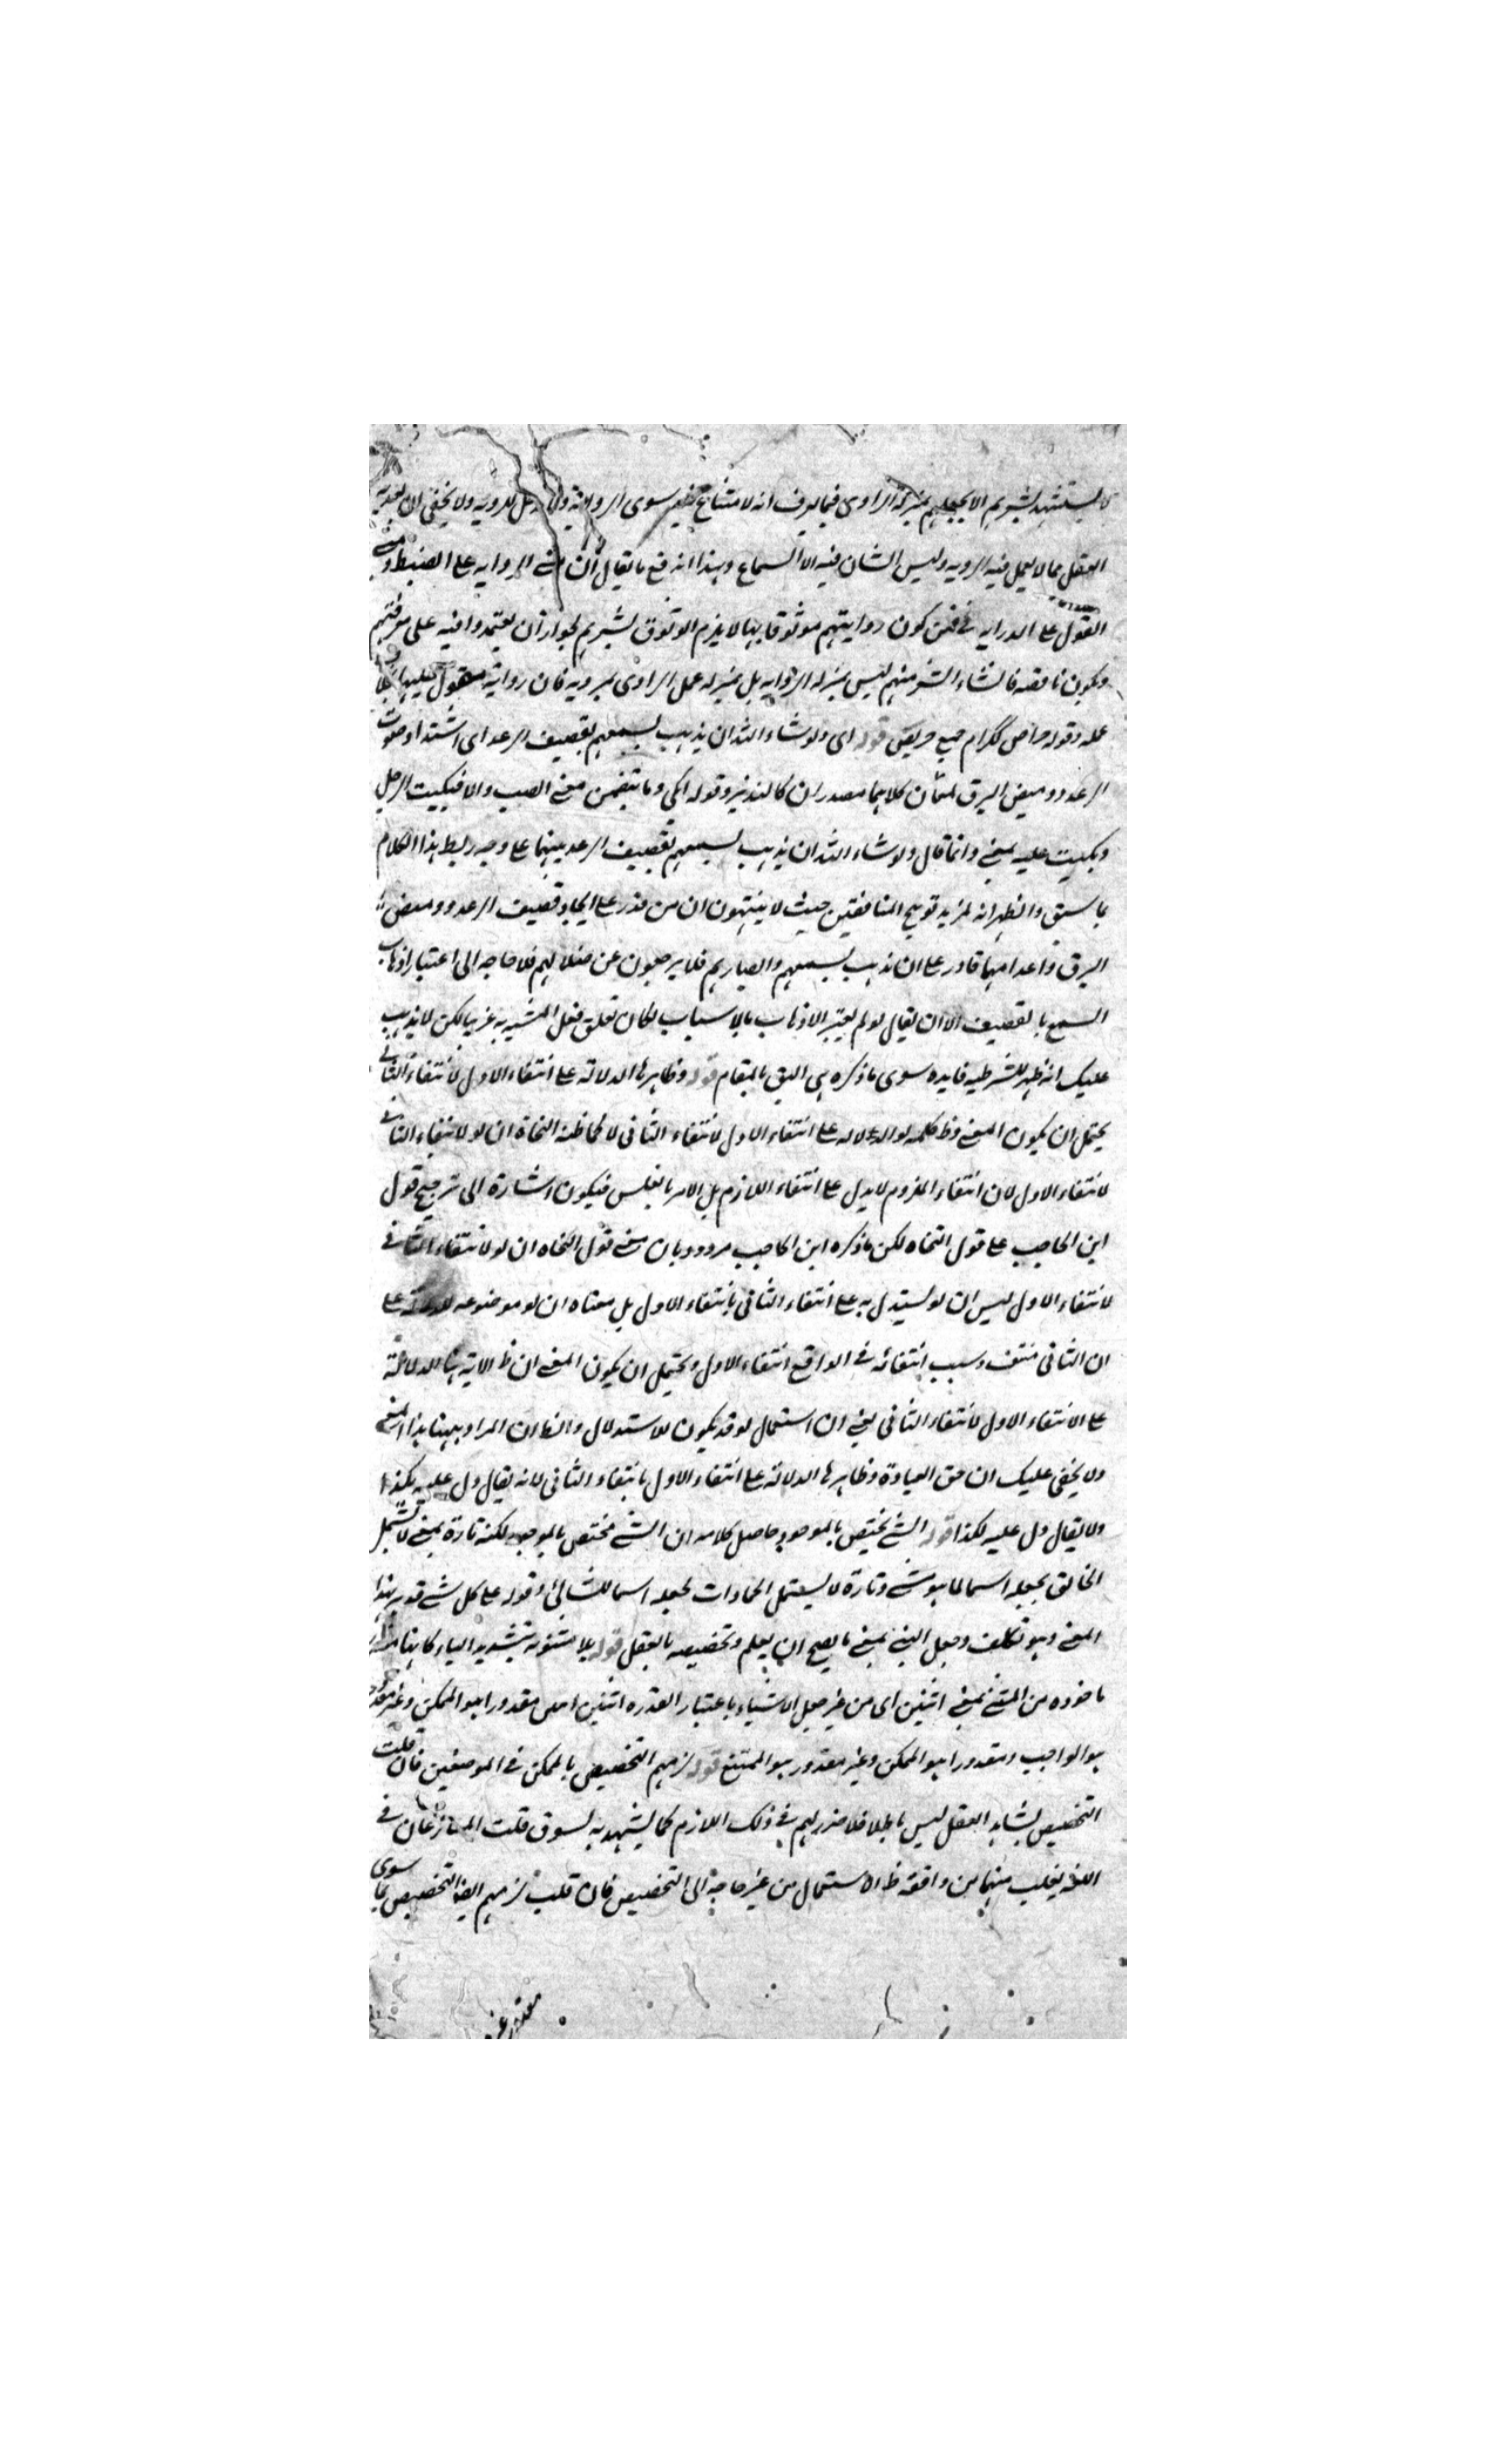 لا يستشهد بشعرهم الا بجعلهم بمنزلة الراوى فيما يعرف انه لا مشاع فيه سوى الرواية ولا مدخل للروية ولا يخفى ان تعدية
الفعل مما لا يعمل فيه الروية وليس الشان فيه الا السماع وبهذا اندفع ما يقال ان مبنى الرواية على الضبط ومبنى
القول على الدراية فمن كون روايتهم موثوقا بها لا يلزم الوثوق بشعرهم لجواز ان يعتمدوا فيه على معرفتهم
ويكون ناقصه فانشاء الشعر منهم ليس بمنزلة الرواية بل بمنزلة عمل الراوى بمرويه فان روايته مقبول
عمله وقوله حراص ككرام جمع حريص قوله اى ولو شاء الله ان يذهب بسمعهم بقصيف الرعد اى اشتداد صوت
الرعد ووميض البرق لمعان كلاهما مصدران كالنذير وقوله ابكى دما يتضمن معنى الصب والا فبكيت الرجل
وبكيت عليه بمعنى وانما قال ولو شاء الله ان يذهب بسمعهم بقصيف الرعد بينهما على وجه ربط هذا الكلام
بما سبق والظهر انه لمزيد توبيخ المنافقين حيث لا ينتهون ان من قدر على ايجاد قصيف الرعد ووميض
البرق واعدامهما قادر على ان يذهب بسمعهم وابصارهم فلا يرجعون عن ضلالهم فلا حاجه الى اعتبار اذهاب
السمع بالقصيف الا ان يقال لو لم يعتبر الاذهاب بالاسباب لكان تعلق فعل المشية به غريبا لكن لا يذهب
عليك انه ظهر للشرطيه فايده سوى ما ذكره هى اليق بالمقام قوله وظاهرها الدلالة على انتفاء الاول لانتفاء الثانى
يحتمل ان يكون المعنى وظ كلمه لو الدلاله على انتفاء الاول لانتفاء الثانى لا كما ظنه النحاة ان لو لانتفاء الثانى
لانتفاء الاول لان انتفاء الملزوم لا يدل على انتفاء اللازم بل الامر بالعكس فيكون اشارة الى ترجيح قول
ابن الحاجب على قول النحاه لكن ما ذكره ابن الحاجب مردود بان معنى قول النحاه ان لو لانتفاء الثانى
لانتفاء الاول ليس ان لو يستدل به على انتفاء الثانى بانتفاء الاول بل معناه ان لو موضوعه للدلالة على
ان الثانى منتف وسبب انتفائه فى الواقع انتفاء الاول ويحتمل ان يكون المعنى ان ظ الاية هنا الدلالة
على الانتفاء الاول لانتفاء الثانى يعنى ان استعمال لو قد يكون للاستدلال والظ ان المراد ههنا هذا المعنى
ولا يخفى عليك ان حق العبارة وظاهرها الدلالة على انتفاء الاول بانتفاء الثانى لانه يقال دل عليه بكذا
ولا يقال دل عليه لكذا قوله الشئ يختص بالموجود حاصل كلامه ان الشئ مختص بالموجود لكنه تارة بمعنى لا يشمل
الخالق بجعله اسما لما هو شئ وتارة لا يشتمل الجمادات بجعله اسما للشائى وقوله على كل شئ قدير بهذا
المعنى وهو تكلف وجعل الشئ بمعنى ما يصح ان يعلم وتخصيصه بالعقل قوله بلا مثنوية بتشديد الياء كانها
ماخوذه من المثنى بمعنى اثنين اى من غير جعل الاشياء باعتبار القدره اثنين اعنى مقدورا هو الممكن وغير مقدور
هو الواجب ومقدورا هو الممكن وغير مقدور هو الممتنع قوله لزمهم التخصيص بالممكن فى الموضعين فان قلت
التخصيص بشاهد العقل ليس باطلا فلا ضرر لهم فى ذلك اللازم كما يشهد به لسوق قلت المتنازعان فى
اللغة يغلب منهما من وافقه ظ الاستعمال من غير حاجة الى التخصيص فان قلت لزمهم ايضا التخصيص بما سوى